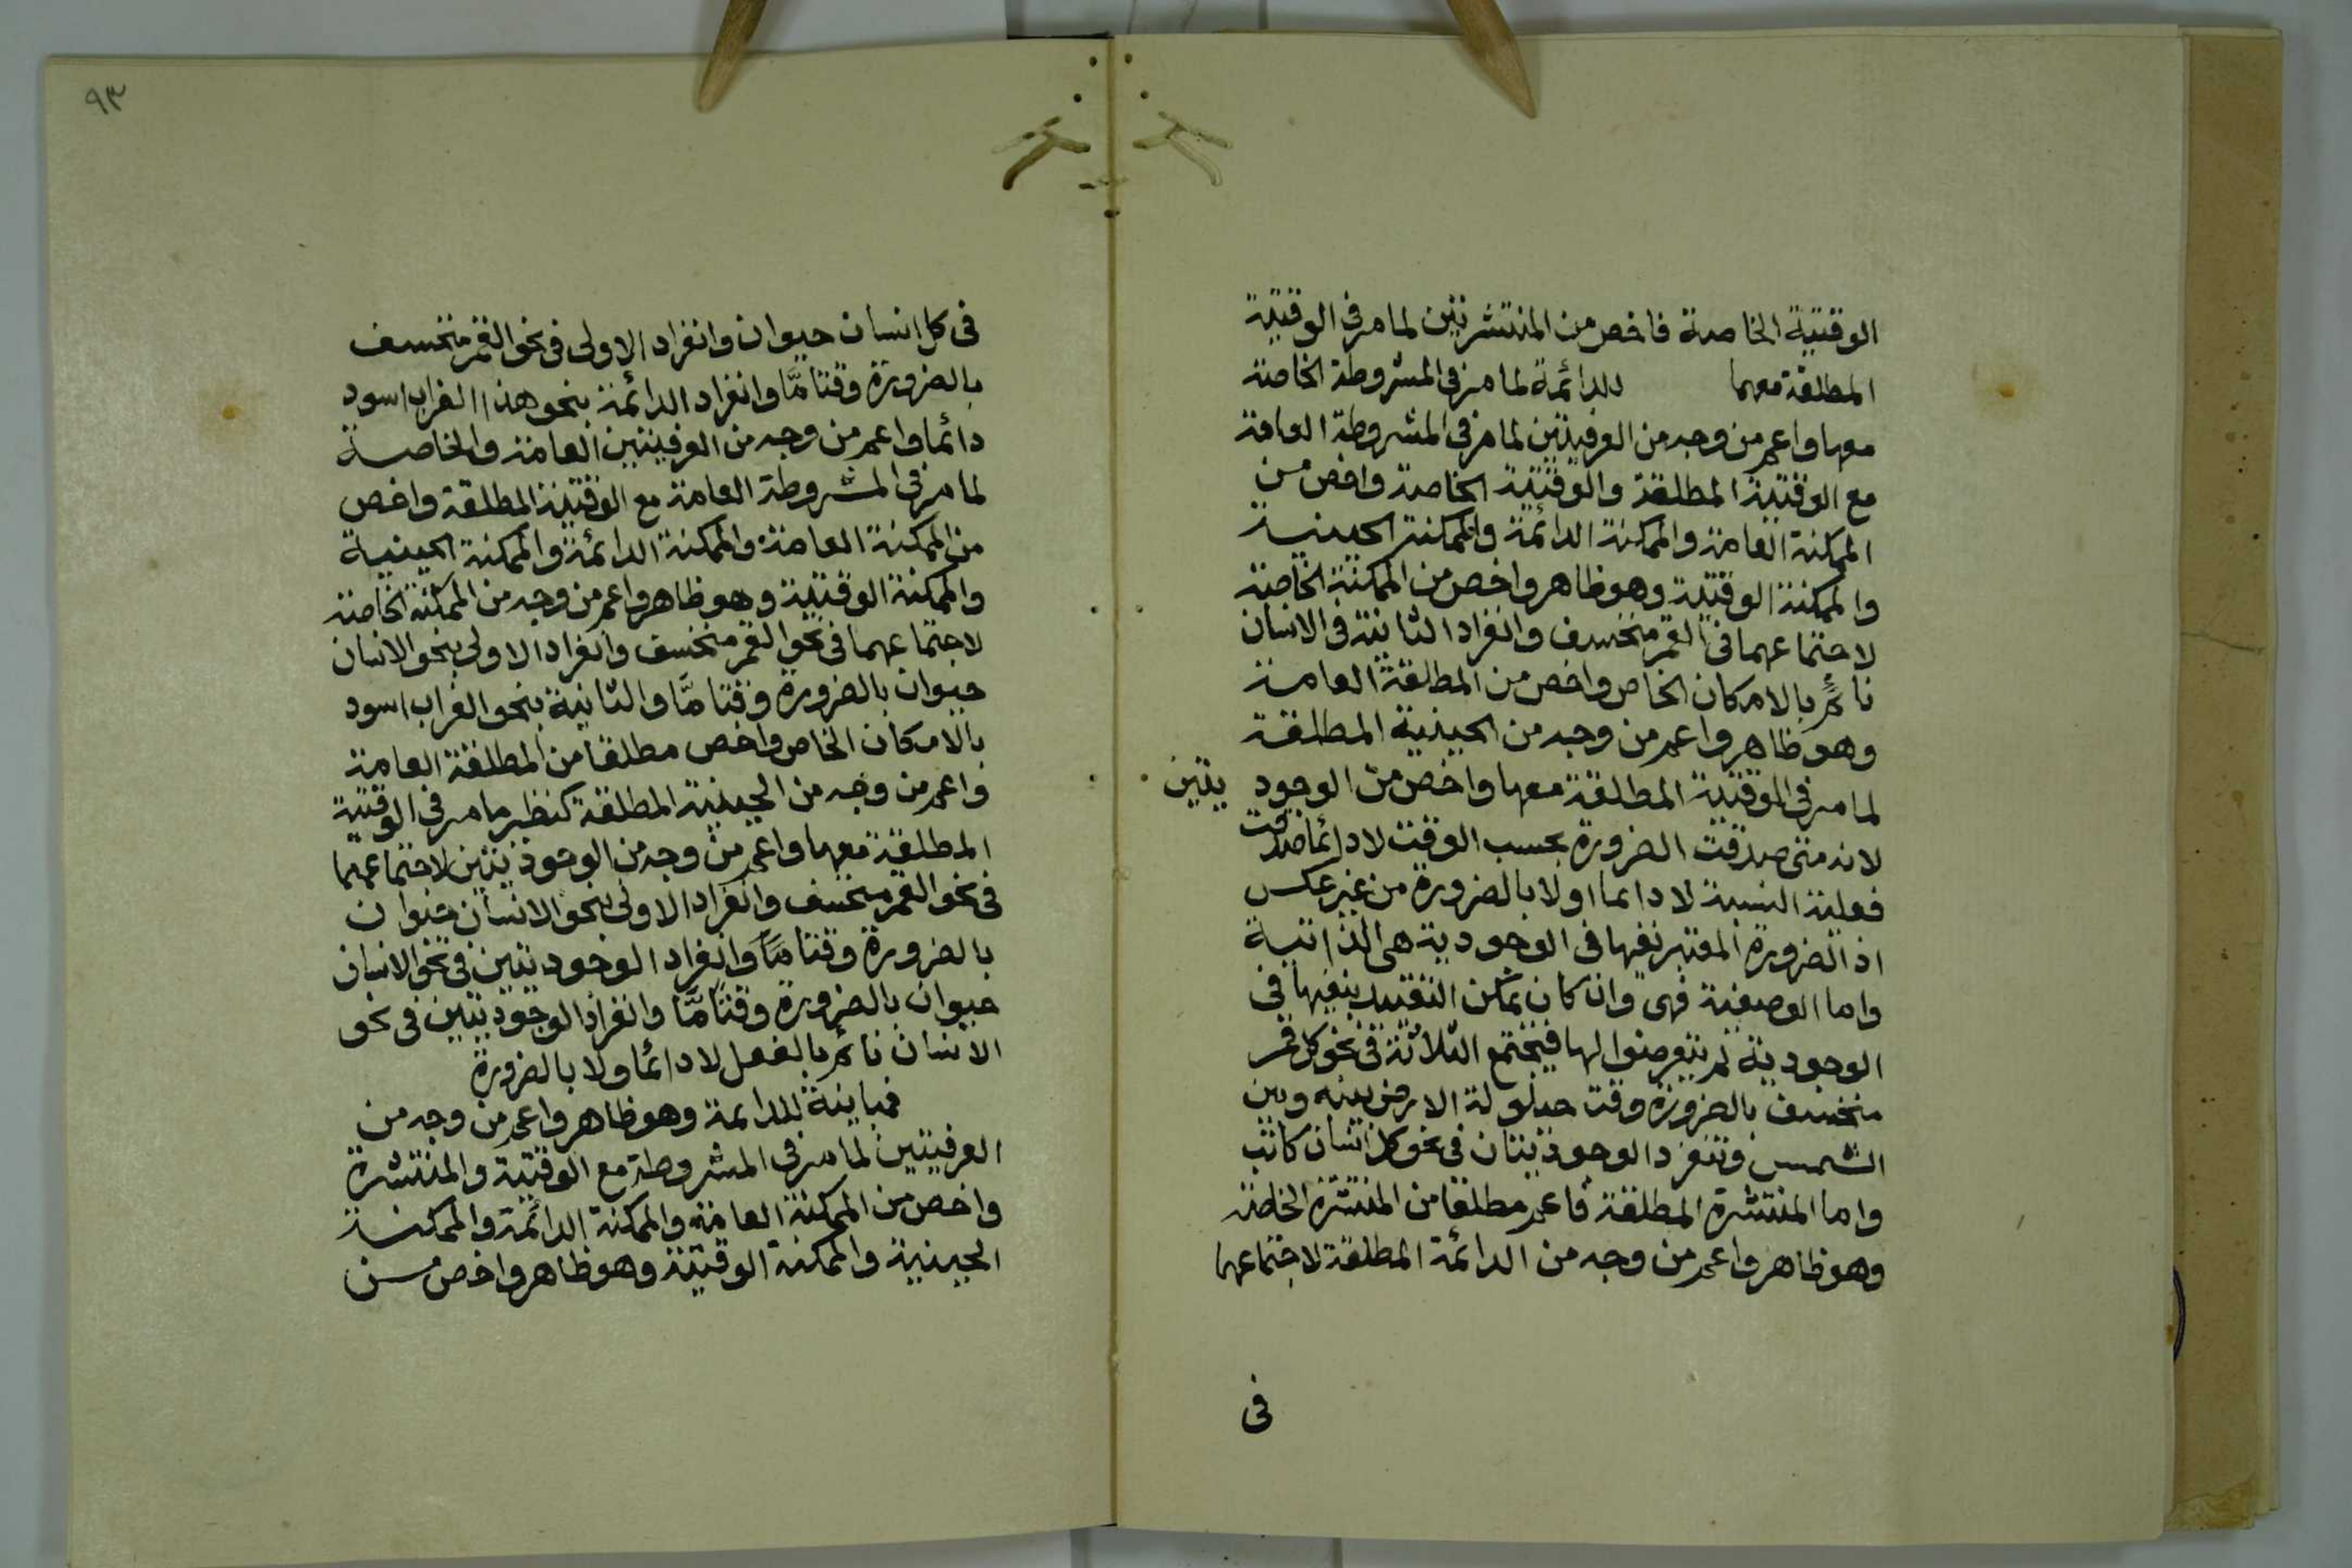 الوقتية الخاصة فاخص من المنتشرتين لما مر فى الوقتية
المطلقة معهما للدائمة لما مر فى المشروطة الخاصة
معها واعم من وجه من العرفيتين لما مر فى المشروطة العامة
مع الوقتية المطلقة والوقتية الخاصة واخص من
الممكنة العامة والممكنة الدائمة والممكنة الحينية
والممكنة الوقتية وهو ظاهر واخص من الممكنة الخاصة
لاجتماعهما فى القمر منخسف وانفراد الثانية فى الانسان
نائم بالامكان الخاص واخص من المطلقة العامة
وهو ظاهر واعم من وجه من الحينية المطلقة
لما مر فى الوقتية المطلقة معها واخص من الوجوديتين
لانه متى صدقت الضرورة بحسب الوقت لا دائما صدقت
فعلية النسبة لا دائما او لا بالضرورة من غير عكس
اذ الضرورة المعتبر نفيها فى الوجودية هى الذاتية
واما الوصفية فهى وان كان يمكن التقييد بنفيها فى
الوجودية لم يتعرضوا لها فيجتمع الثلاثة فى نحو كل قمر
منخسف بالضرورة وقت حيلولة الارض بينه وبين
الشمس وتنفرد الوجوديتان فى نحو كل انسان كاتب
واما المنتشرة المطلقة فاعم مطلقا من المنتشرة الخاصة
وهو ظاهر واعم من وجه من الدائمة المطلقة لاجتماعهما
فى
٩٣
فى كل انسان حيوان وانفراد الاولى فى نحو القمر منخسف
بالضرورة وقتا مَّا وانفراد الدائمة بنحو هذا الغراب اسود
دائما واعم من وجه من العرفيتين العامة والخاصة
لما مر فى المشروطة العامة مع الوقتية المطلقة واخص
من الممكنة العامة والممكنة الدائمة والممكنة الحينية
والممكنة الوقتية وهو ظاهر واعم من وجه من الممكنة الخاصة
لاجتماعهما فى نحو القمر منخسف وانفراد الاولى بنحو الانسان
حيوان بالضرورة وقتا مَّا والثانية بنحو الغراب اسود
بالامكان الخاص واخص مطلقا من المطلقة العامة
واعم من وجه من الحينية المطلقة كنظير ما مر فى الوقتية
المطلقة معها واعم من وجه من الوجوديتين لاجتماعهما
فى نحو القمر منخسف وانفراد الاولى بنحو الانسان حيوان
بالضرورة وقتا مَّا وانفراد الوجوديتين فى نحو الانسان
حيوان بالضرورة وقتا مَّا وانفراد الوجوديتين فى نحو
الانسان نائم بالفعل لا دائما ولا بالضرورة
فمباينة للدائمة وهو ظاهر واعم من وجه من
العرفيتين لما مر فى المشروطة مع الوقتية والمنتشرة
واخص من الممكنة العامة والممكنة الدائمة والممكنة
الحينية والممكنة الوقتية وهو ظاهر واخص من